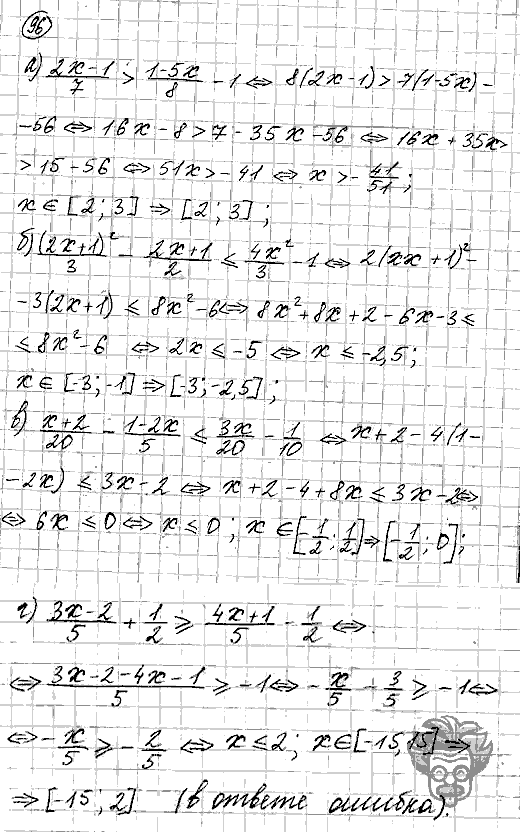 96
а) (2x-1)/7 > (1-5x)/8 - 1 ⇔ 8(2x-1) > 7(1-5x) -
-56 ⇔ 16x - 8 > 7 - 35x - 56 ⇔ 16x + 35x >
> 15 - 56 ⇔ 51x > -41 ⇔ x > -41/51;
x ∈ [2; 3] ⇒ [2; 3];
б) (2x+1)²/3 - (2x+1)/2 ≤ 4x²/3 - 1 ⇔ 2(xx+1)² -
-3(2x+1) ≤ 8x² - 6 ⇔ 8x² + 8x + 2 - 6x - 3 ≤
≤ 8x² - 6 ⇔ 2x ≤ -5 ⇔ x ≤ -2,5;
x ∈ [-3; -1] ⇒ [-3; -2,5];
в) (x+2)/20 - (1-2x)/5 ≤ 3x/20 - 1/10 ⇔ x + 2 - 4(1-
-2x) ≤ 3x - 2 ⇔ x + 2 - 4 + 8x ≤ 3x - 2 ⇔
⇔ 6x ≤ 0 ⇔ x ≤ 0; x ∈ [-1/2; 1/2] ⇒ [-1/2; 0];
г) (3x-2)/5 + 1/2 ≥ (4x+1)/5 - 1/2 ⇔
⇔ (3x-2-4x-1)/5 ≥ -1 ⇔ -x/5 - 3/5 ≥ -1 ⇔
⇔ -x/5 ≥ -2/5 ⇔ x ≤ 2; x ∈ [-15, 15] ⇒
⇒ [-15; 2] (в ответе ошибка).